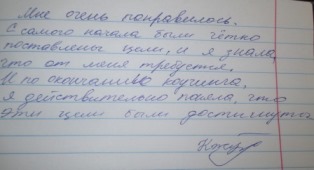 Мне очень понравилось.
С самого начала были чётко
поставлены цели, и я знала,
что от меня требуется.
И по окончанию коучинга,
я действительно поняла, что
эти цели были достигнуты.